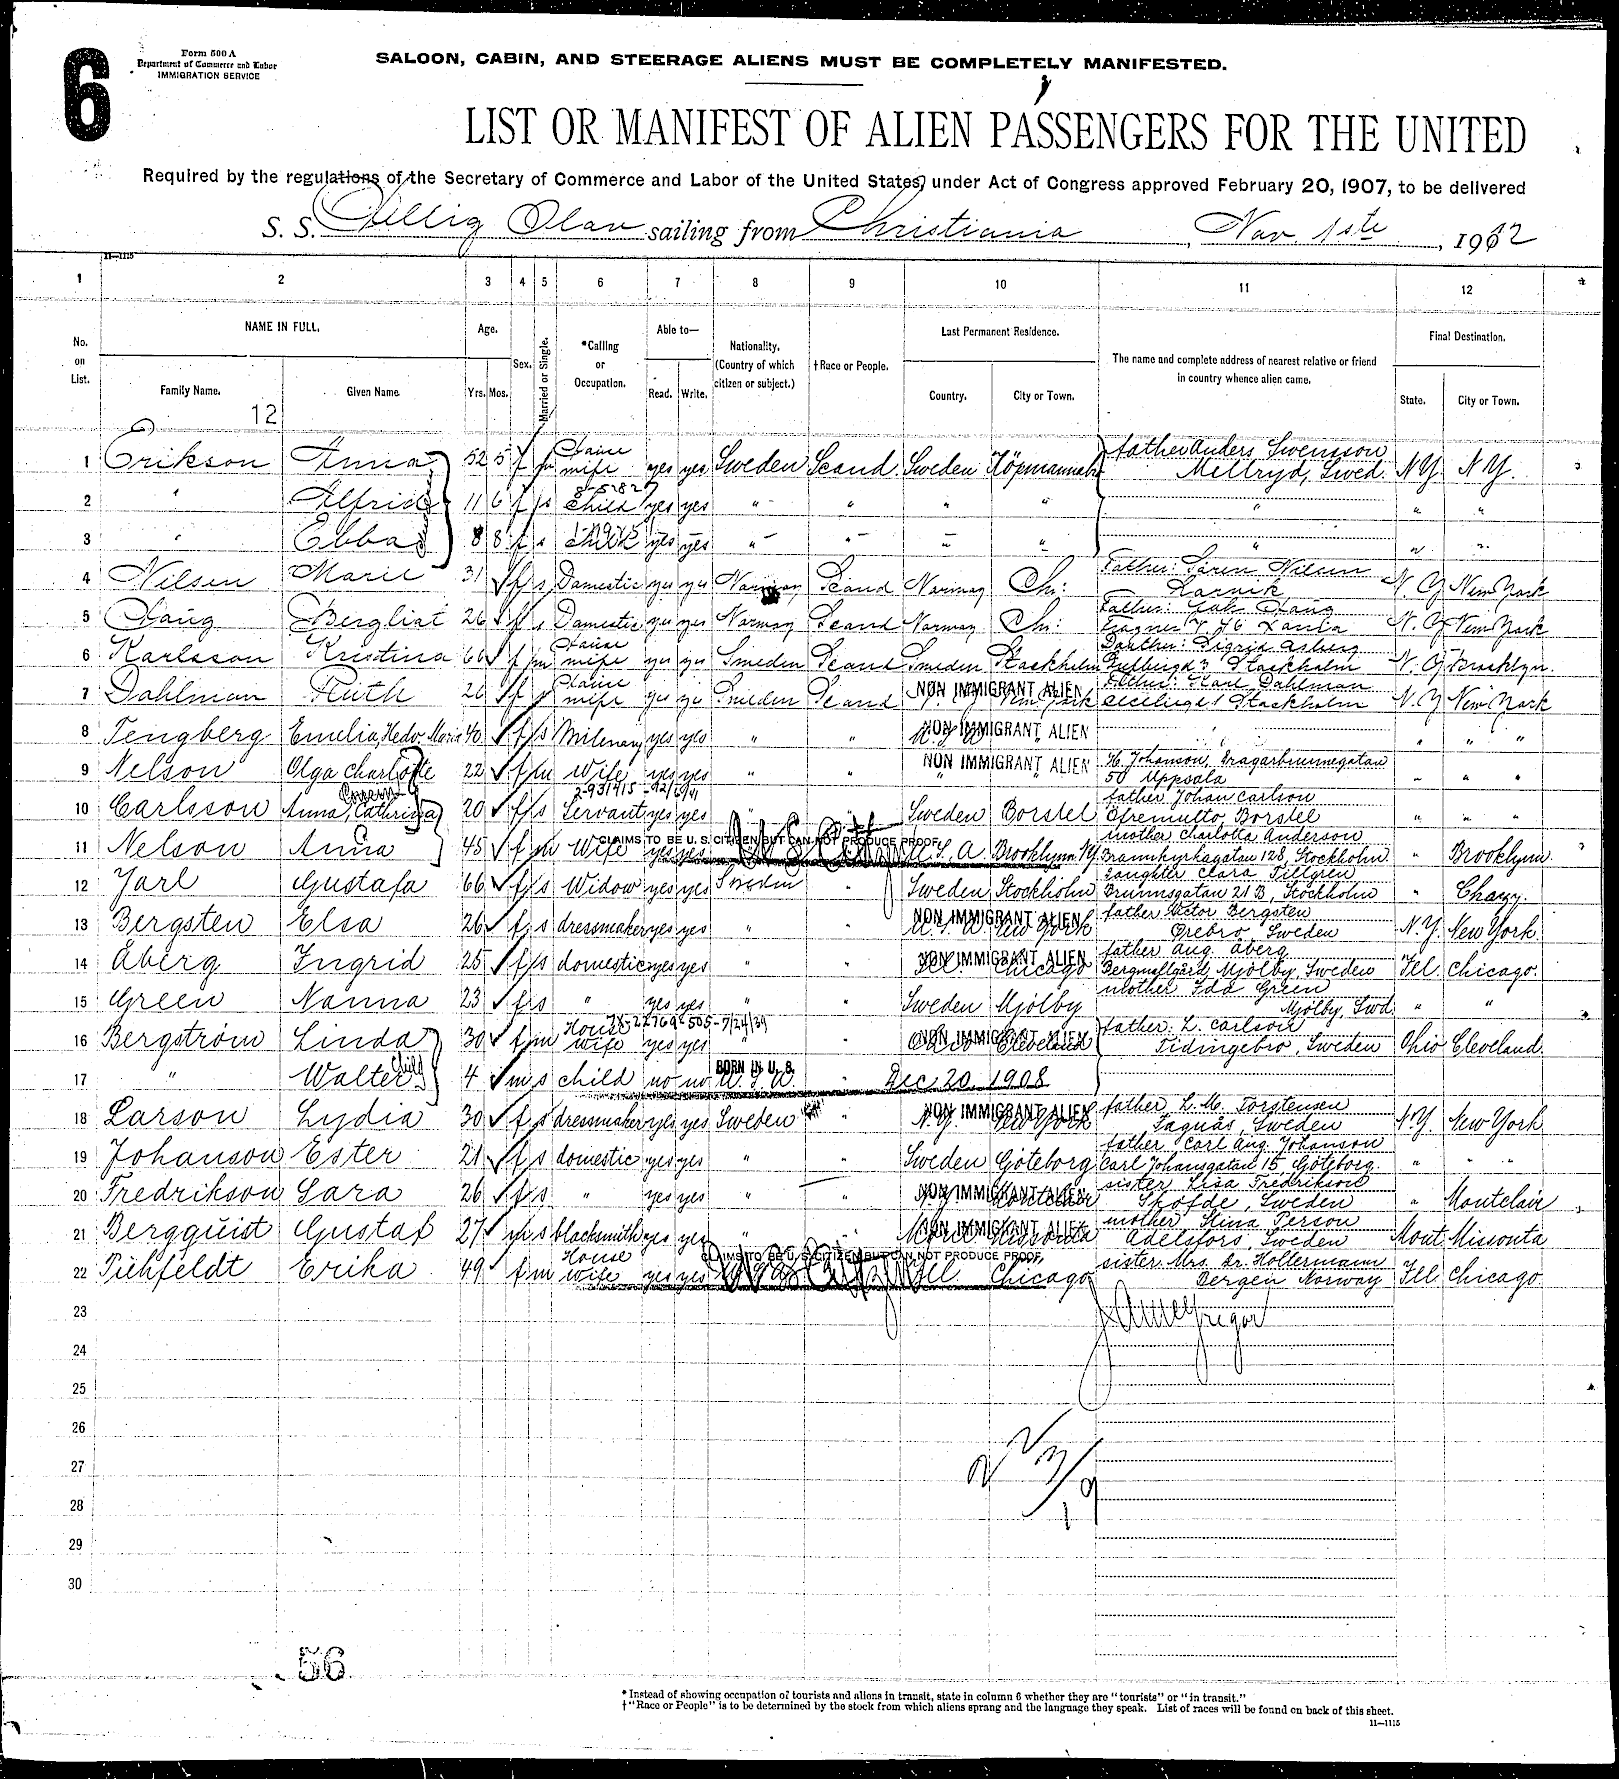 6
Form 500 A
Department of Commerce and Labor
IMMIGRATION SERVICE
SALOON, CABIN, AND STEERAGE ALIENS MUST BE COMPLETELY MANIFESTED.
LIST OR MANIFEST OF ALIEN PASSENGERS FOR THE UNITED
Required by the regulations of the Secretary of Commerce and Labor of the United States, under Act of Congress approved February 20, 1907, to be delivered
S. S. Hellig Olav sailing from Christiania, Nov. 1ste, 1912
11—1115
1 2 3 4 5 6 7 8 9 10 11 12
No. on List.
NAME IN FULL.
Family Name. Given Name.
Age.
Yrs. Mos.
Sex.
Married or Single.
*Calling or Occupation.
Able to—
Read. Write.
Nationality. (Country of which citizen or subject.)
†Race or People.
Last Permanent Residence.
Country. City or Town.
The name and complete address of nearest relative or friend in country whence alien came.
Final Destination.
State. City or Town.
12
father Anders Swensson
1 Erikson Anna 32 5 f m wife yes yes Sweden Scand Sweden Köpmannab Mellryd, Swed. N.Y. N.Y.
2 " Alfrid 11 6 f s child yes yes " " " " " " "
3 " Ebba 8 8 f s child yes yes " " " " " " "
Father: Sören Nilsen
4 Nilsen Marie 31 f s Domestic yes yes Norway Scand Norway Chr: N.Y. New York
Father:
5 Haug Bergliat 26 f s Domestic yes yes Norway Scand Norway Chr: N.Y. New York
Sigrid
6 Karlsson Kristina 60 f m wife yes yes Sweden Scand Sweden Stockholm Stockholm N.Y. Brooklyn.
NON IMMIGRANT ALIEN Father: Karl Dahlman
7 Dahlman Ruth 26 f wife yes yes Sweden Scand N.Y. New York Stockholm N.Y. New York
8 Tengberg Emelia, Hedv. Maria 40 f s Milenary yes yes " " NON IMMIGRANT ALIEN " " " "
9 Nelson Olga Charlotte 22 f m Wife yes yes " " NON IMMIGRANT ALIEN H. Johanson, Dragarbrunnsgatan 50 Uppsala " " "
2-931415
father Johan Carlson
10 Carlsson Anna, Cathrina 20 f s Servant yes yes " " Sweden Borstel Borstel " " "
CLAIMS TO BE U. S. CITIZEN BUT CAN NOT PRODUCE PROOF.
mother Charlotta Anderson
11 Nelson Anna 45 f m Wife yes yes U.S. Citz U.S.A. Brooklynn NY Brannkyrkagatan 128, Stockholm " Brooklynn.
daughter Clara Tillgren
12 Jarl Gustafa 66 f s Widow yes yes Sweden " Sweden Stockholm Brunnsgatan 21 B, Stockholm " Chazy.
NON IMMIGRANT ALIEN father Victor Bergsten
13 Bergsten Elsa 26 f s dressmaker yes yes " " U.S.A. New York Örebro, Sweden N.Y. New York
NON IMMIGRANT ALIEN father Aug. Åberg
14 Åberg Ingrid 25 f s domestic yes yes " " Ill. Chicago Mjölby, Sweden Ill. Chicago.
mother Ida Green
15 Green Nanna 23 f s " yes yes " " Sweden Mjölby Mjölby, Swd. " "
7/24/39
NON IMMIGRANT ALIEN father L. Carlson
16 Bergström Linda 30 f m House wife yes yes " " Ohio Cleveland Tidingebro, Sweden Ohio Cleveland.
BORN IN U. S.
17 " Walter Child 4 m s child no no U.S.A. " Dec. 20, 1908
NON IMMIGRANT ALIEN father L. M. Torstensen
18 Larson Lydia 30 f s dressmaker yes yes Sweden " N.Y. New York Sweden N.Y. New York
father Carl Aug. Johanson
19 Johanson Ester 21 f s domestic yes yes " " Sweden Göteborg Carl Johansgatan 15, Göteborg. " " "
NON IMMIGRANT ALIEN sister Lisa Fredrikson
20 Fredrikson Sara 26 f s " yes yes " " N.Y. Montclair Skofde, Sweden " Montclair
NON IMMIGRANT ALIEN mother Stina Person
21 Bergquist Gustaf 27 m s blacksmith yes yes " " Adelsfors, Sweden Mont Missouta
CLAIMS TO BE U. S. CITIZEN BUT CAN NOT PRODUCE PROOF.
sister Mrs. Dr. Holtermann
22 Pihlfeldt Erika 49 f m House wife yes yes Ill. Chicago Bergen Norway Ill Chicago.
23
24
25
26
27
28
29
30
56
*Instead of showing occupation of tourists and aliens in transit, state in column 6 whether they are "tourists" or "in transit."
†"Race or People" is to be determined by the stock from which aliens sprang and the language they speak. List of races will be found on back of this sheet.
11—1115